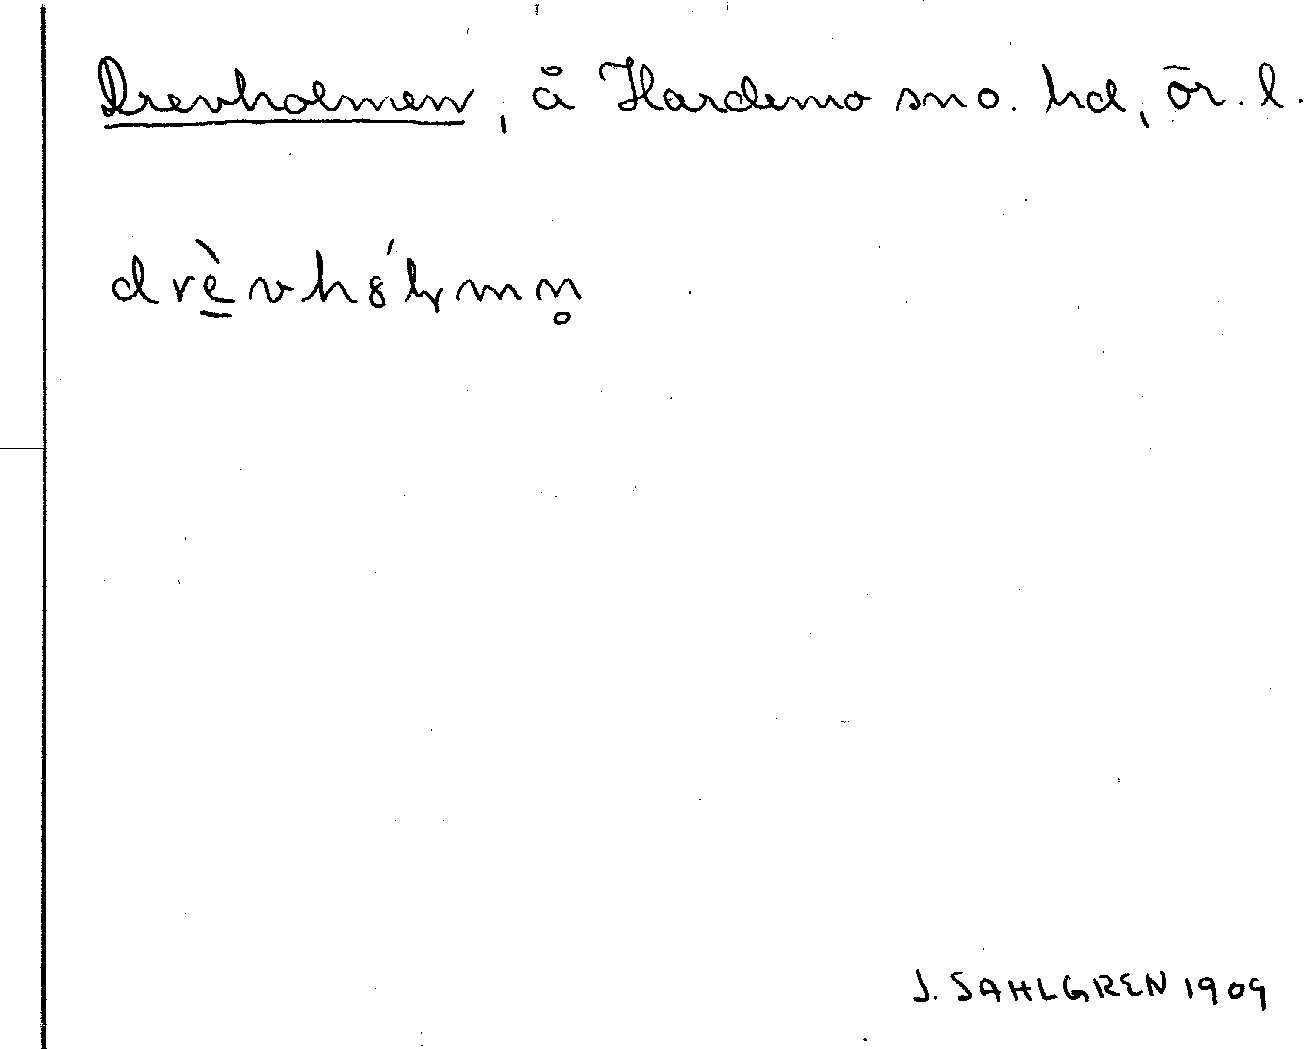 Drevholmen, å Hardemo sn o. hd, ör. l.
drè̲vh8́lmn̥
J. SAHLGREN 1909